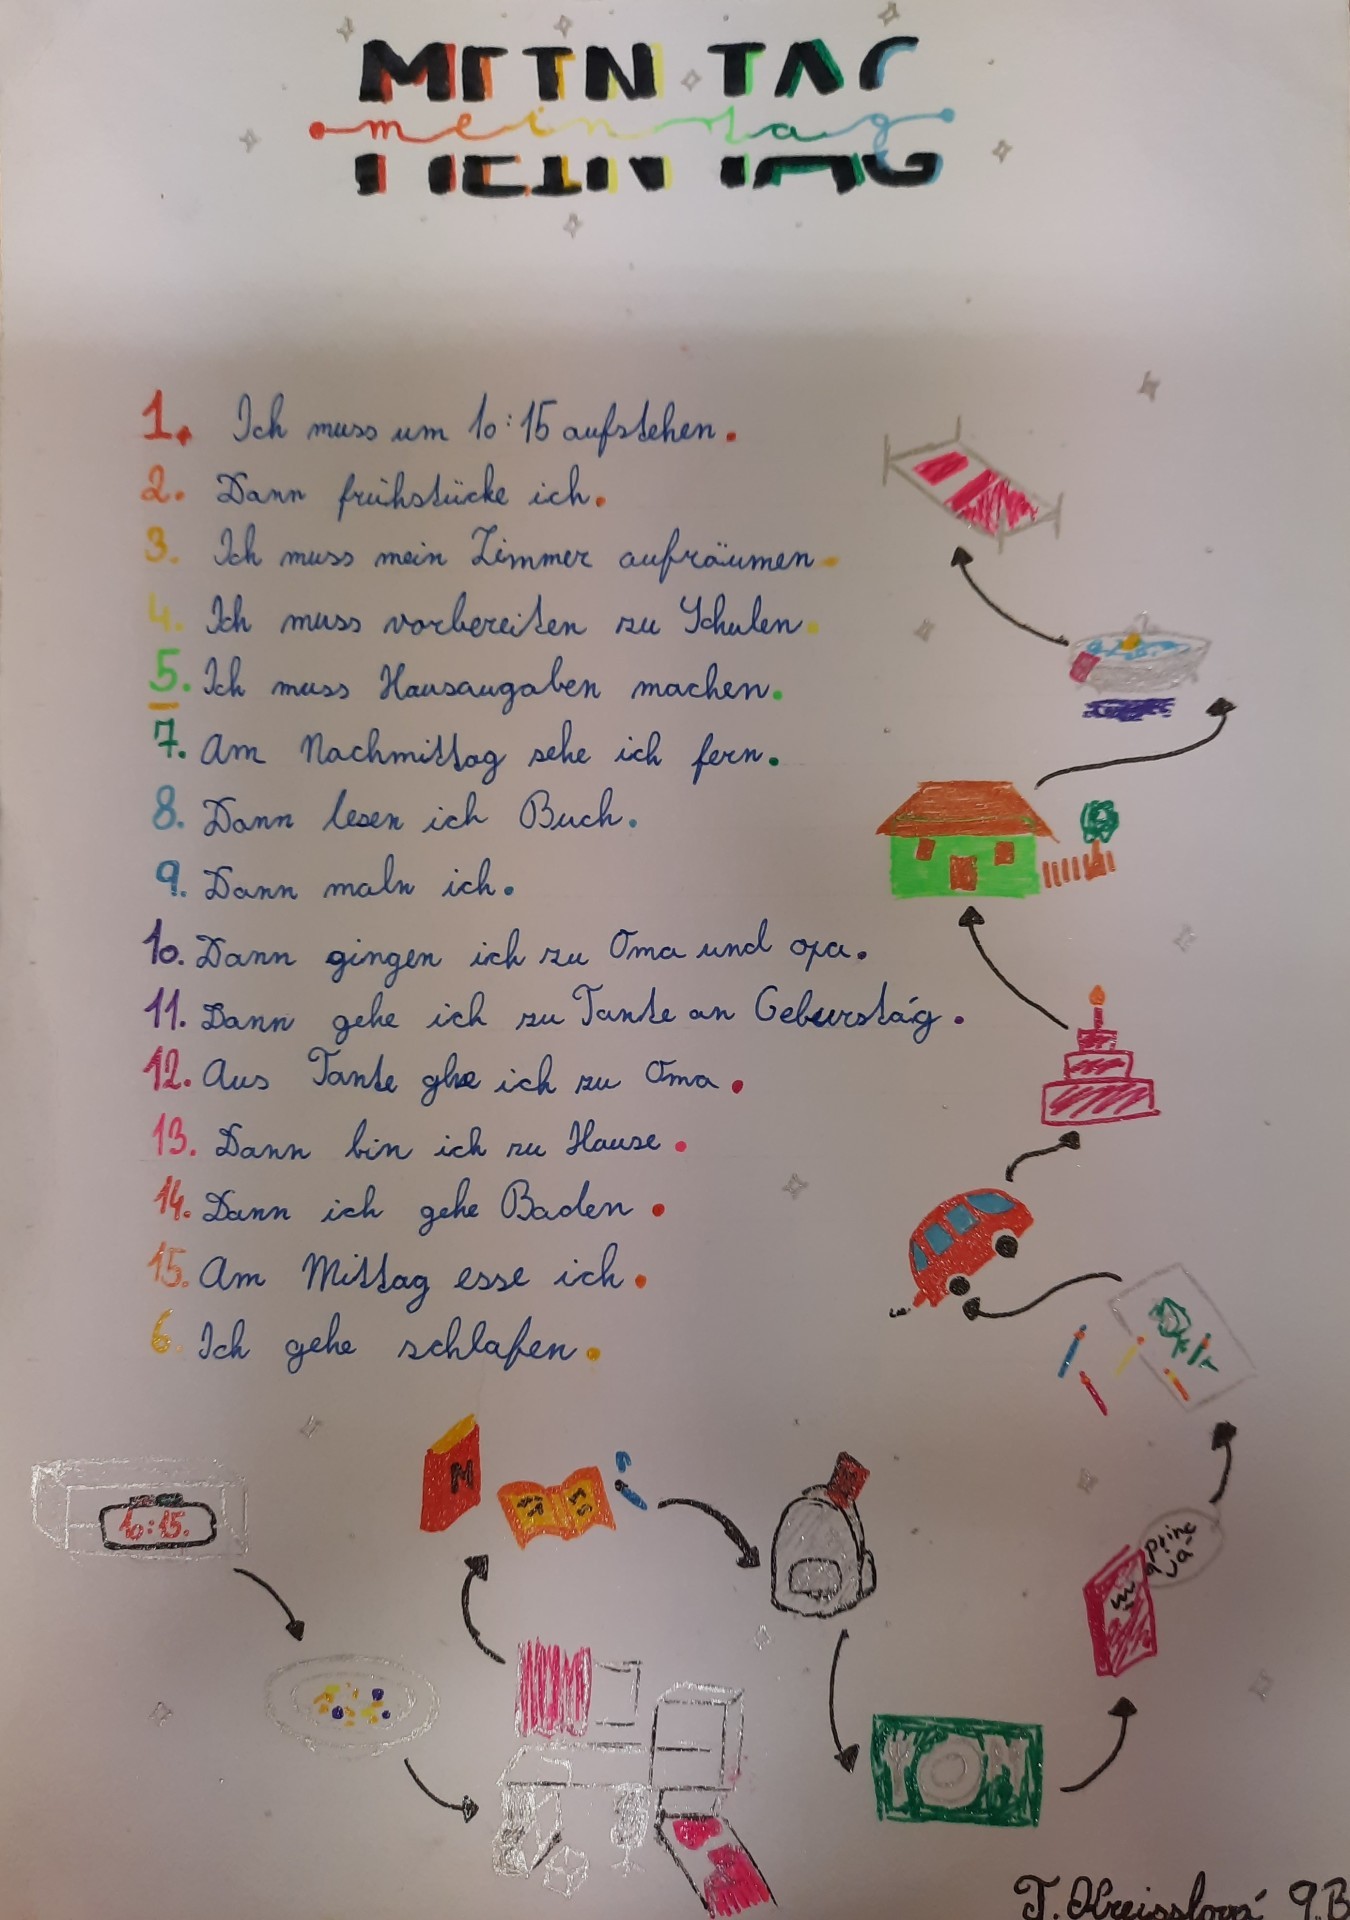 MEIN TAG
mein tag
1. Ich muss um 10:15 aufstehen.
2. Dann frühstücke ich.
3. Ich muss mein Zimmer aufräumen.
4. Ich muss vorbereiten zu Schulen.
5. Ich muss Hausaugaben machen.
7. Am Nachmittag sehe ich fern.
8. Dann lesen ich Buch.
9. Dann maln ich.
10. Dann gingen ich zu Oma und opa.
11. Dann gehe ich zu Tante an Geburstág.
12. Aus Tante ghe ich zu Oma.
13. Dann bin ich zu Hause.
14. Dann ich gehe Baden.
15. Am Mittag esse ich.
6. Ich gehe schlafen.
M
10:15.
princ
a já
T. Kreisslová 9.B